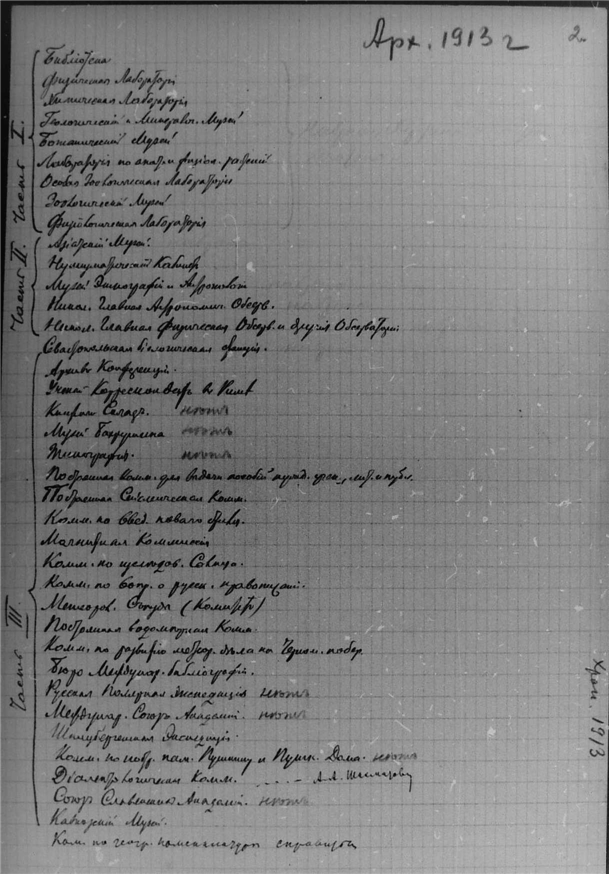 Арх. 1913 г
2.
Часть I.
Библіотека
Физическая Лабораторія
Химическая Лабораторія
Геологическій и Минералог. Музей
Ботаническій Музей
Лабораторія по анатом. и физіол. растеній
Особая Зоологическая Лабораторія
Зоологическій Музей
Физіологическая Лабораторія
Часть II.
Азіатскій Музей.
Нумизматическій Кабинетъ
Музей Этнографіи и Антропологіи
Никол. Главная Астрономич. Обсерв.
Никол. Главная Физическая Обсерв. и другія Обсерваторіи
Часть III
Севастопольская біологическая станція.
Архивъ Конференціи.
Ученый Корреспондентъ въ Римѣ
Книжный Складъ. нѣтъ
Музей Бахрушина нѣтъ
Типографія. нѣтъ
Постоянная комм. для выдачи пособій нужд. учен., лит. и публ.
Постоянная Сейсмическая Комм.
Комм. по введ. новаго стиля.
Магнитная Коммиссія
Комм. по изслѣдов. Солнца.
Комм. по вопр. о русск. правописаніи.
Метеоров. Отдѣлъ (Комитетъ)
Постоянная водомѣрная Комм.
Комм. по развитію метеор. дѣла на Черном. побер.
Бюро Междунар. библіографіи.
Русская Полярная экспедиція нѣтъ
Междунар. Союзъ Академій. нѣтъ
Шпицбергенская Экспедиція.
Комм. по постр. пам. Пушкину и Пушк. Дома. нѣтъ
Діалектологическая Комм. . . . – А.А. Шахматову
Союзъ Славянскихъ Академій. нѣтъ
Кавказскій Музей.
Ком. по геогр. номенклатуры
Хрон. 1913